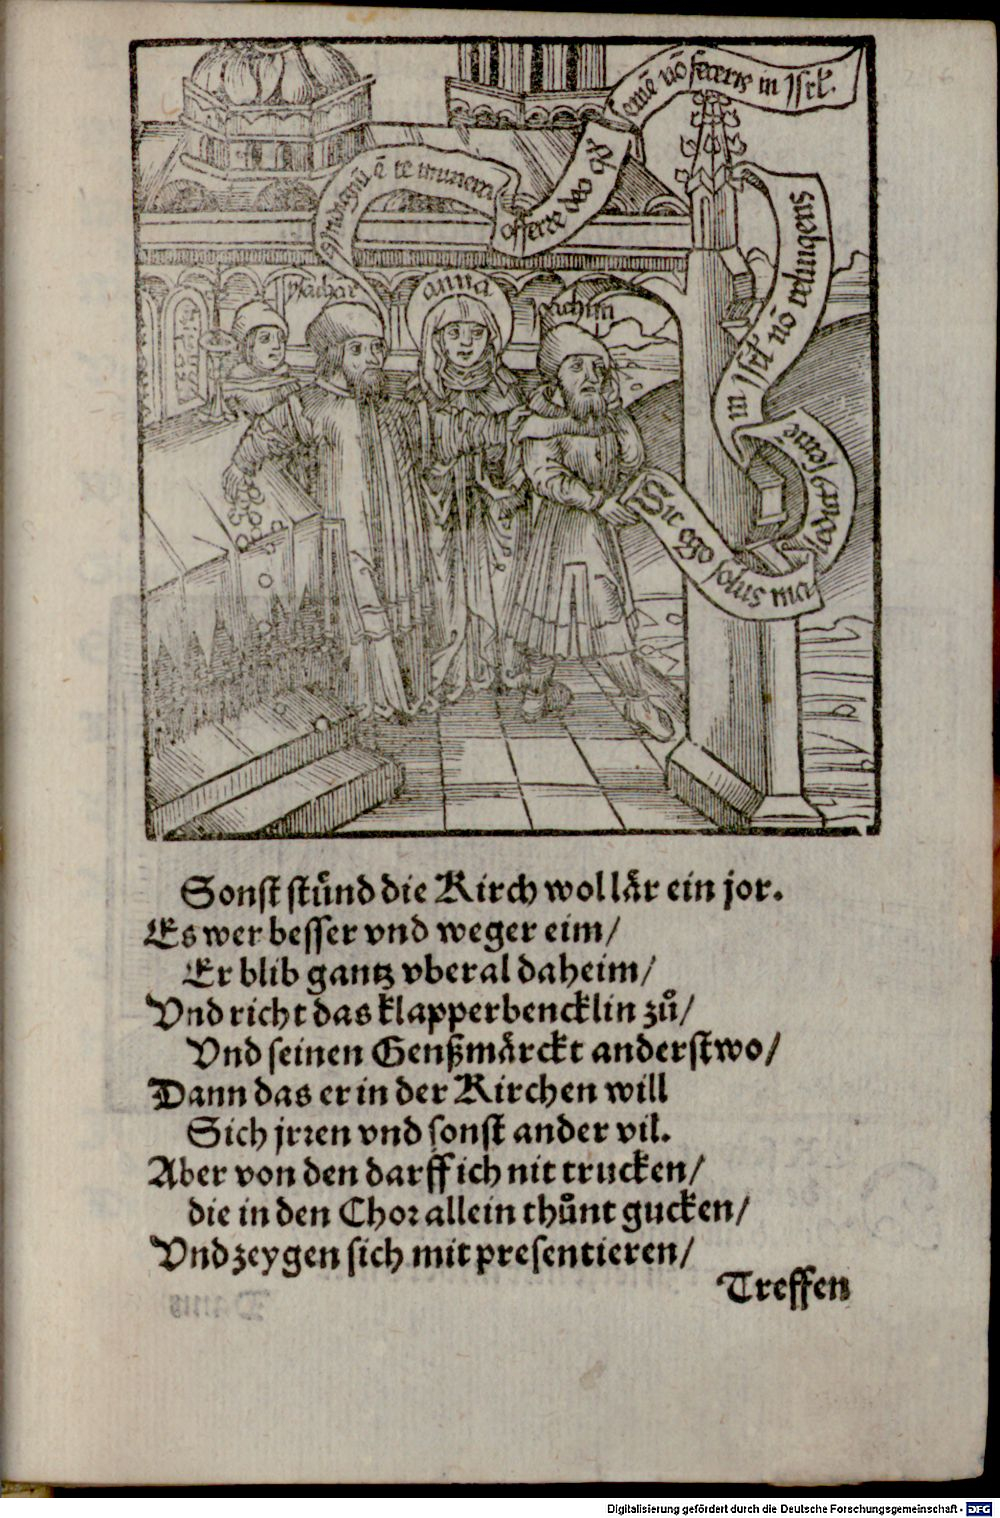 Indignū ē te munera
offerre deo qr
semē nō feceris in Isrl.
ysachar
anna
Jachim
Sic ego solus mia
ludar semē
in Isrl nō relinqens
Sonst stuͤnd die Kirch wol laͤr ein jor.
Es wer besser vnd weger eim/
Er blib gantz vberal daheim/
Vnd richt das klapperbencklin zuͦ/
Vnd seinen Genßmaͤrckt anderstwo/
Dann das er in der Kirchen will
Sich jrren vnd sonst ander vil.
Aber von den darff ich nit trucken/
die in den Chor allein thuͤnt gucken/
Vnd zeygen sich mit presentieren/
Treffen
Digitalisierung gefördert durch die Deutsche Forschungsgemeinschaft - DFG